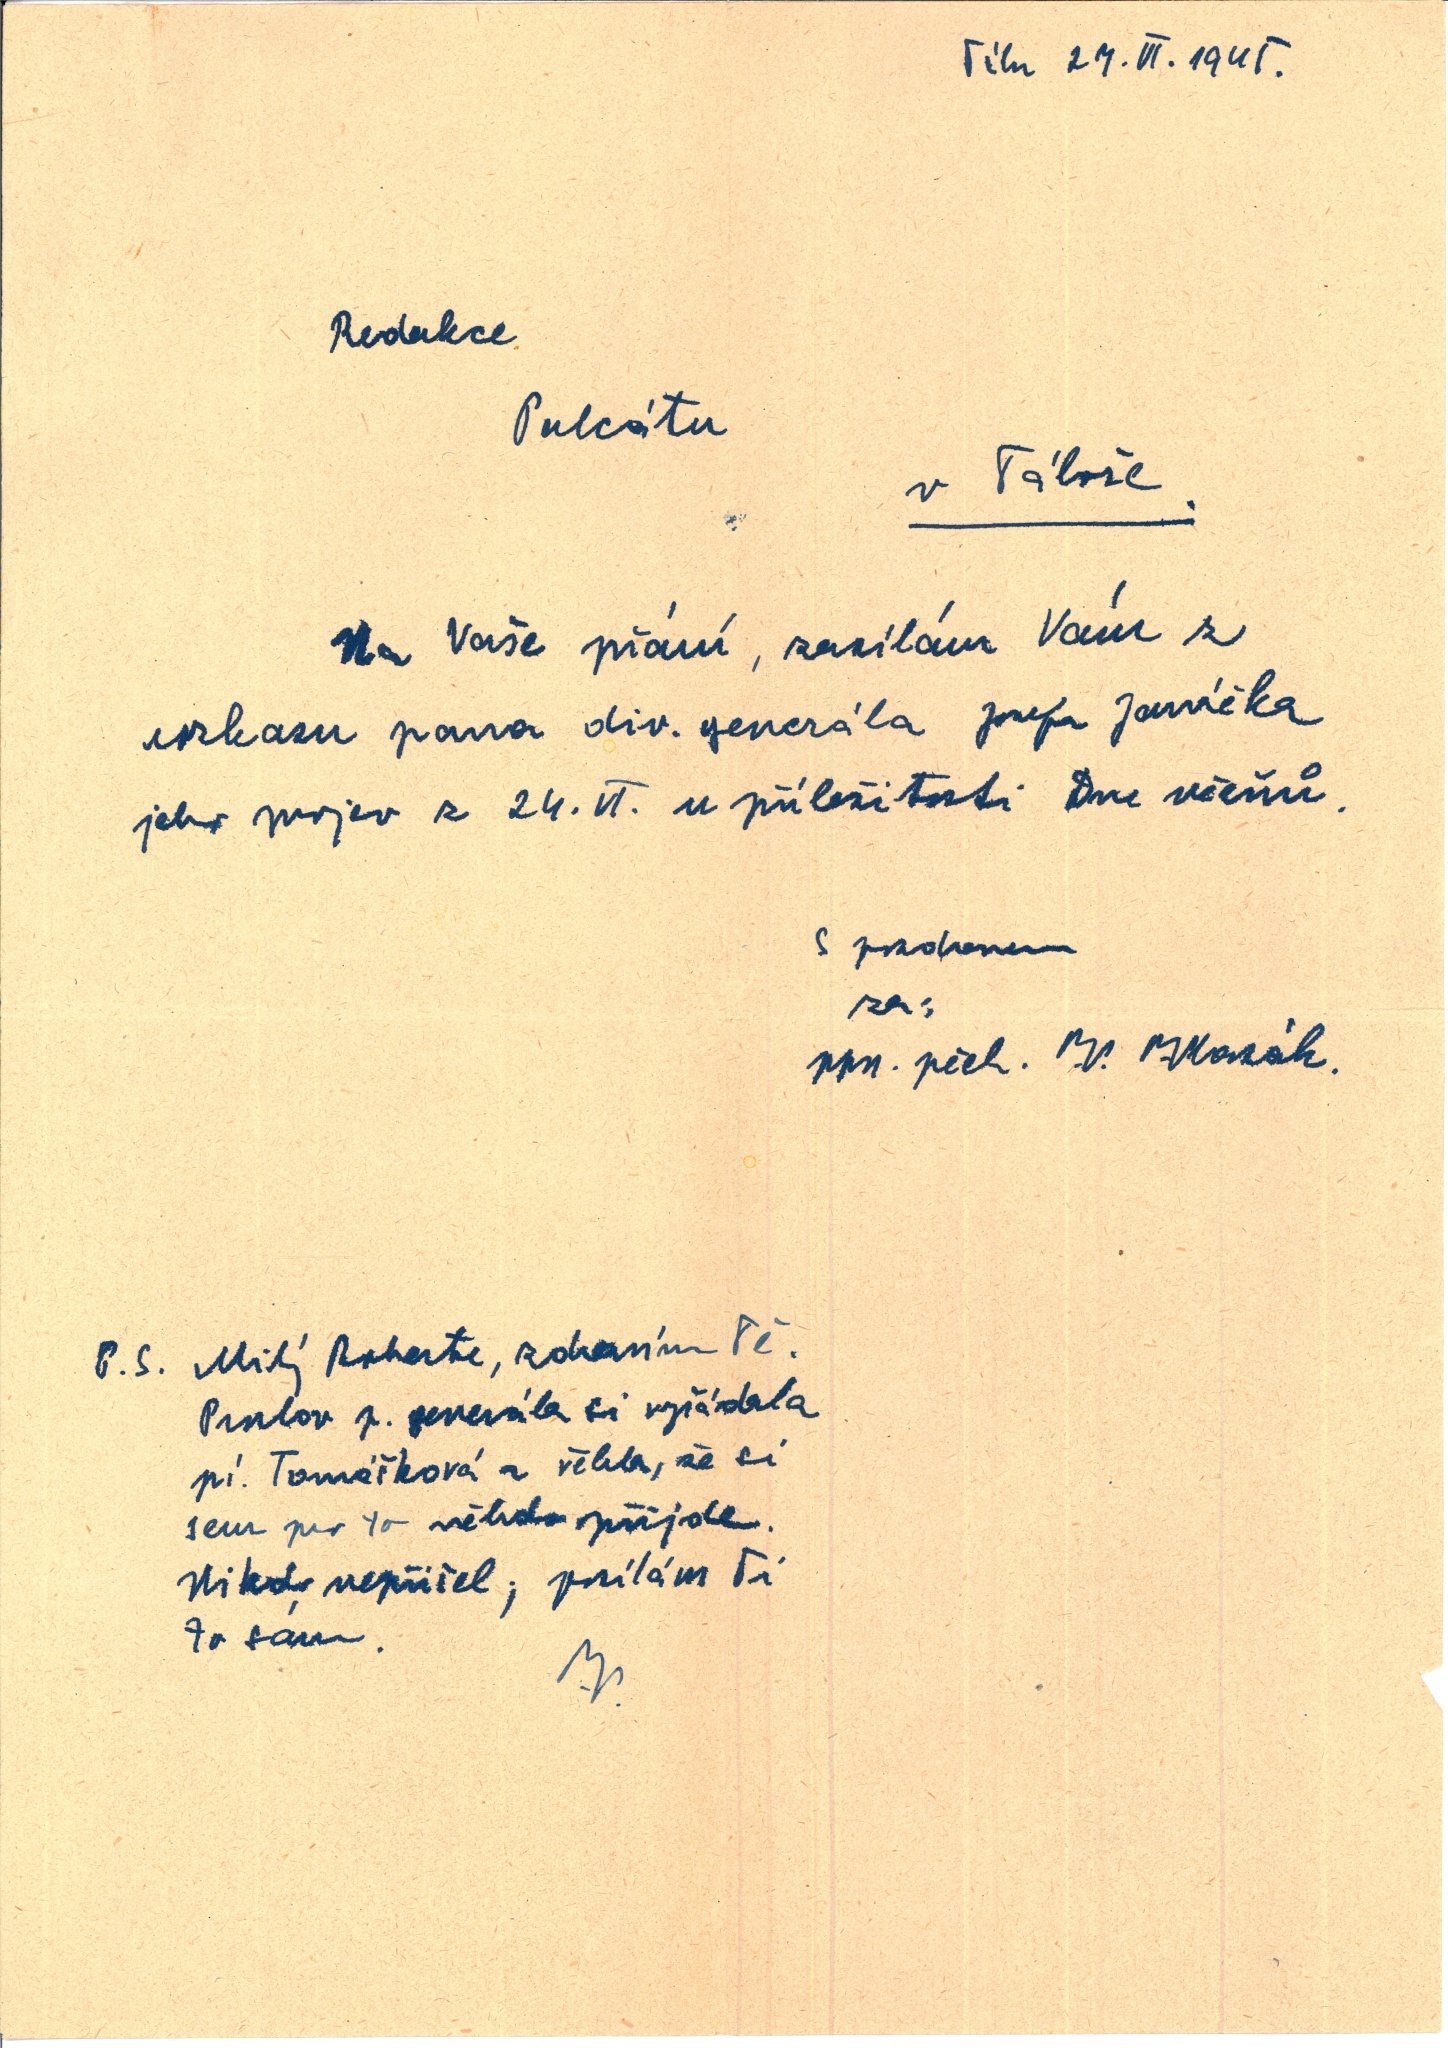 Tábor 27. VI. 1945.
Redakce
Palcátu
v Táboře.
Na Vaše přání, zasílám Vám z
rozkazu pana div. generála Josefa Janáčka
jeho projev z 24. VI. u příležitosti Dne vězňů.
S pozdravem
za:
ppl. pěch. Kozák.
P.S. Milý Roberte, zdravím Tě.
Proslov p. generála si vyžádala
pí. Tomášková a řekla, že si
sem pro to někdo přijde.
Nikdo nepřišel; posílám Ti
to sám.